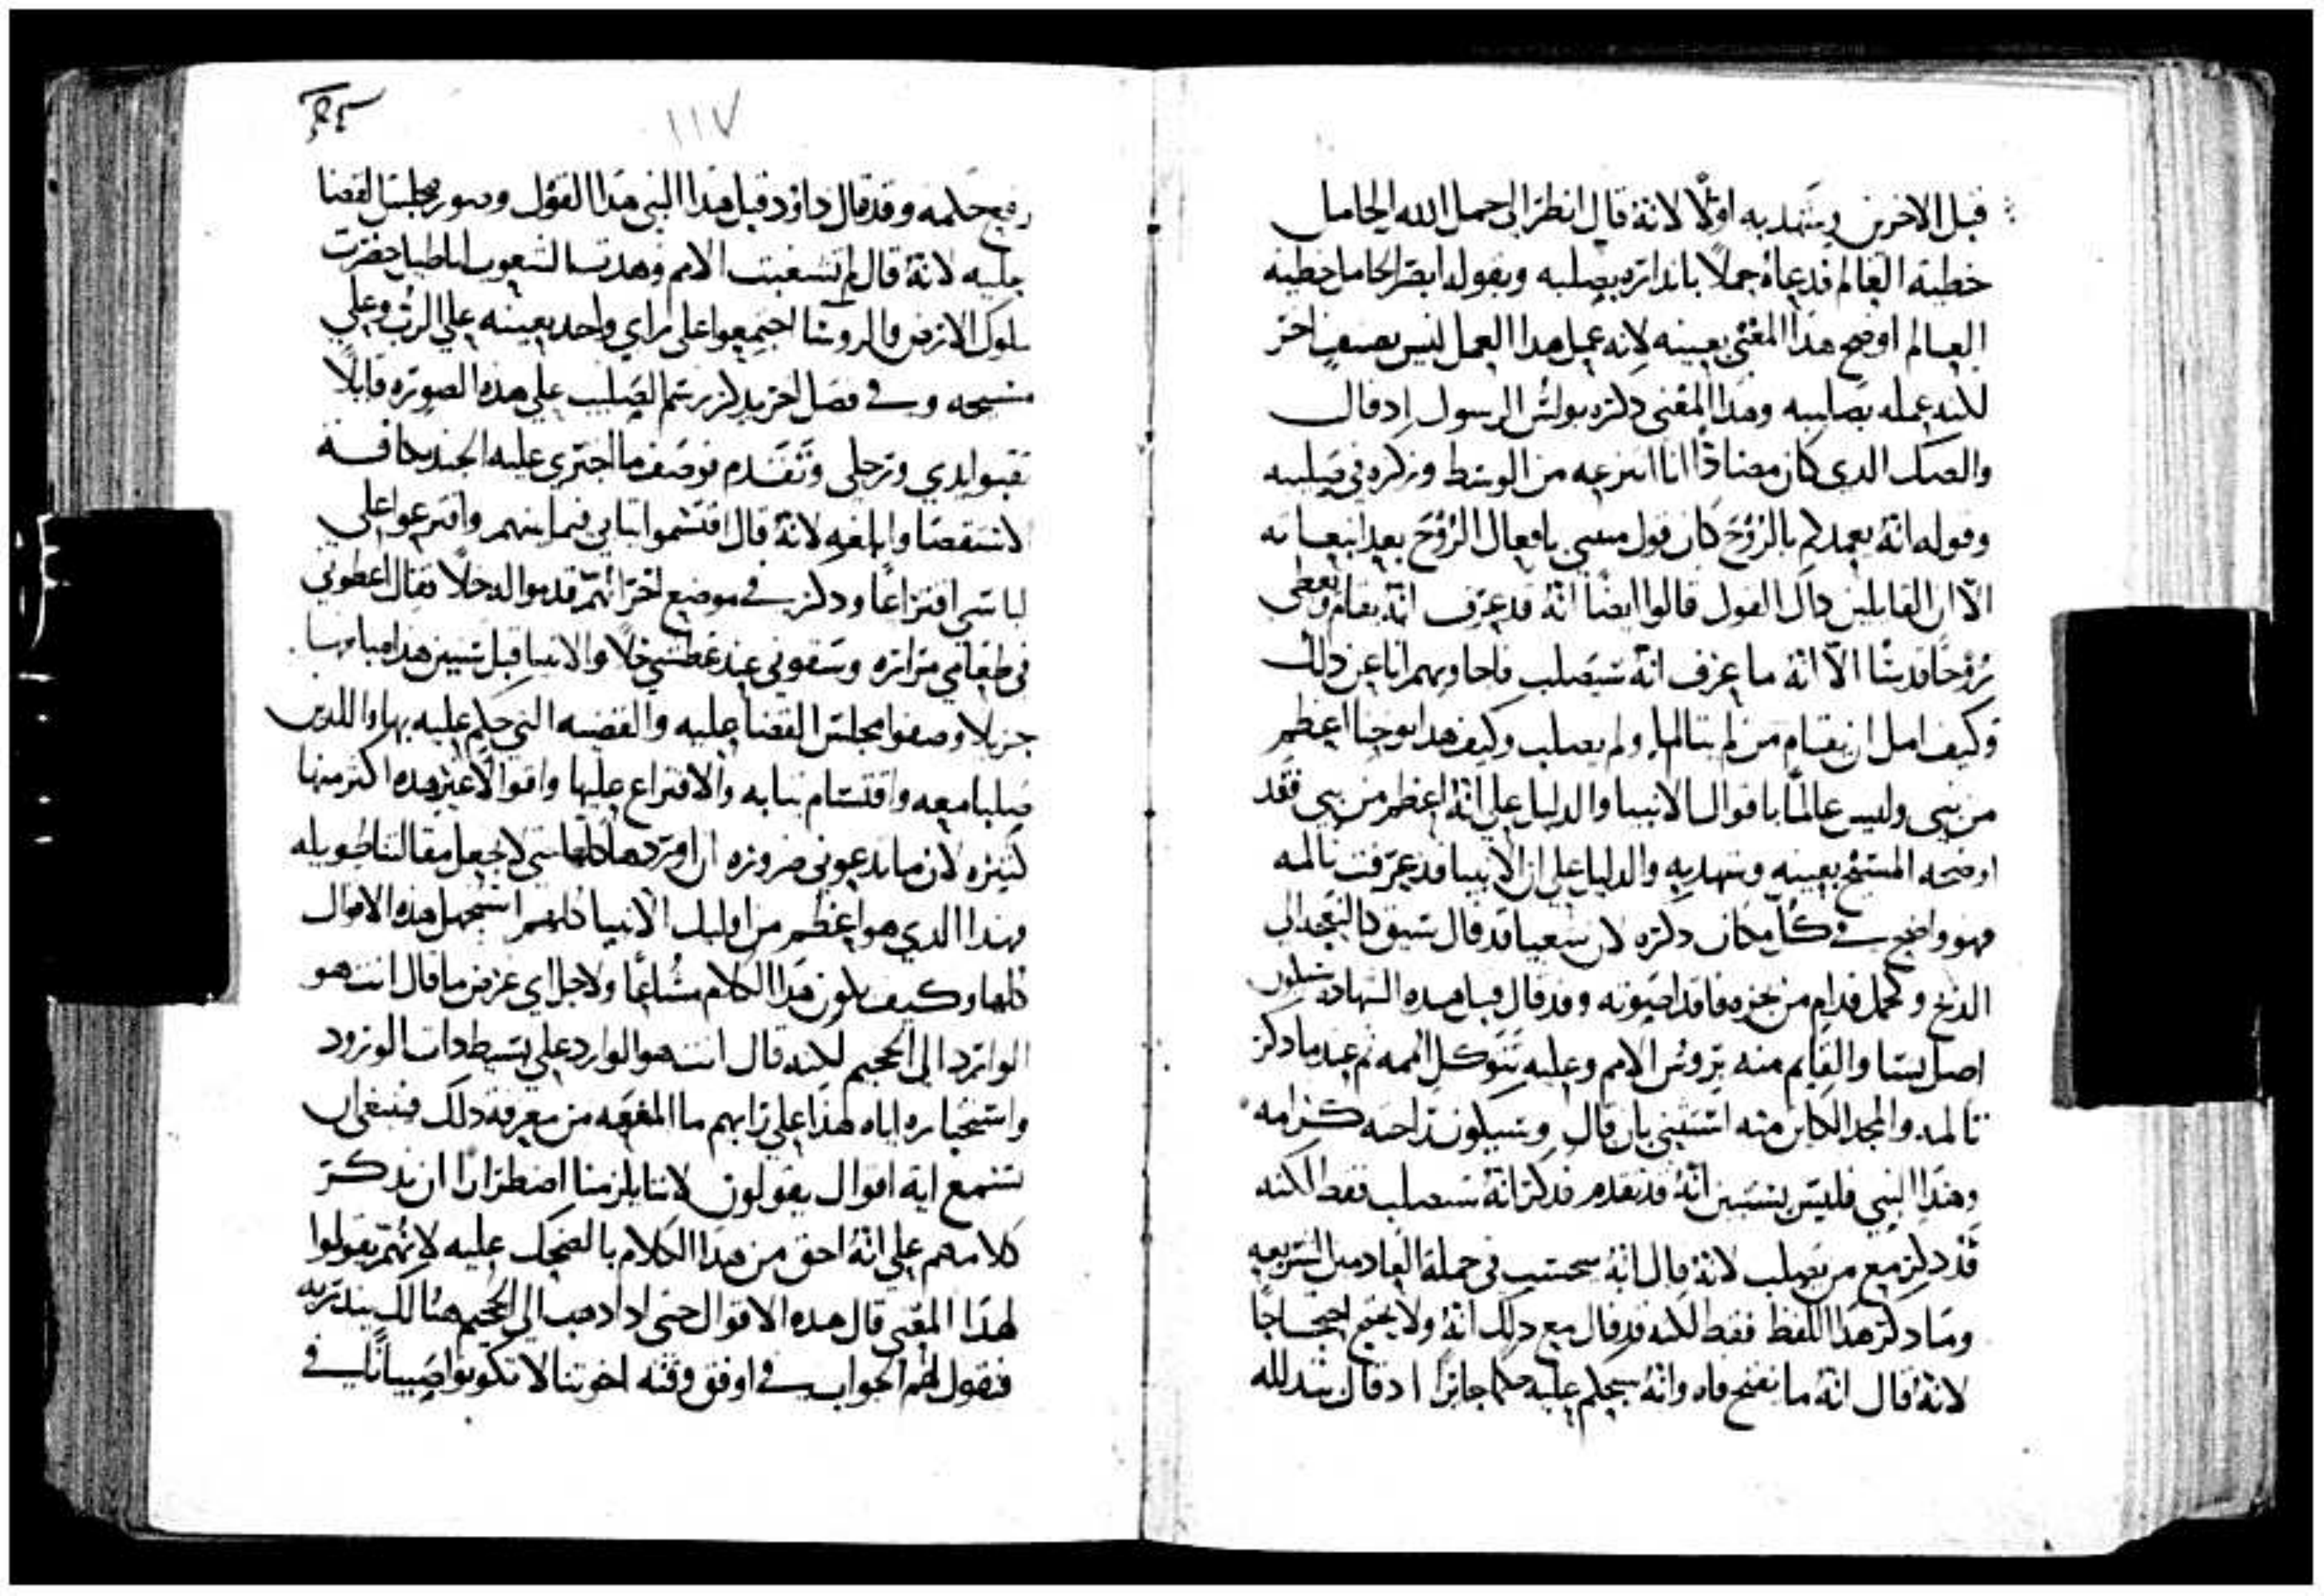 قبل الاخرين ويشهد به اولًا لانهُ قال انظر الى حمل الله الحامل
خطية العالم فدعاهُ حملًا بانذاره بصلبه وبقوله ايضًا الحامل خطية
العالم اوضح هذا المعنى بعينه لانه عمل هذا العمل ليس بصنفٍ اخر
لكنه عمله بصليبه وهذا المعنى ذكره بولس الرسول اذ قال
والصك الدي كان مضاددًا لنا انتزعه من الوسط وركزه في صليبه
وقوله انهُ يعمدكم بالروح كان قول بافعال الروح بعد انبعاثه
الا ان القايلين داك القول قالوا ايضًا انهُ قد عرف انهُ يقام ويعطي
روحًا قدسًا الا انهُ ما عرف انهُ سيصلب فاجاوبهم انا عن ذلك
وكيف امل ان يقام من لم يتالم ولم يصلب وكيف هدا يوحنا اعظم
من نبي وليس عالمًا باقوال الانبيا والدليل على انهُ اعظم من نبي فقد
اوضحه المسيح بعينه وشهد به والدليل على ان الانبيا قد عرفت تالمه
فهو واضح في كل مكان ذكره لان شعيا قد قال سيق كالنعجه الى
الدبح وكحمل قدام من يجزه فاقدًا صوته وقد قال قبل هده الشهاده سيكون
اصل يسا والقايم منه يروس الامم وعليه تتوكل امم ثم عند ما ذكر
تالمه والمجد الكاين منه استثنى بان قال وستكون راحته كرامه
وهدا النبي فليس يستبين انهُ قد تقدم فدكر انهُ سيصلب فقط لكنه
قد دكر مع من يصلب لانهُ قال انهُ سيحتسب في جملة العادمين الشريعه
وما دكر هدا اللفظ فقط لكنه قد قال مع دلك انهُ ولا يحتج احتجاجًا
لانهُ قال انهُ ما يفتح فاه وانهُ سيحكم عليه حكمًا جايرًا اد قال
رفع حكمه وقد قال داوود قبل هدا النبي هدا القول وصور مجلس القضا
عليه لانهُ قال لم تشغبت الامم وهدت الشعوب اباطيل حضرت
ملوك الارض والروسا اجتمعوا على راي واحد بعينه على الرب وعلى
مسيحه وفي فصل اخر يدكر رسم الصليب على هده الصوره قايلًا
ثقبوا يدي ورجلي وتقدم فوصف ما اجترى عليه الجند كافة
لانهُ قال اقتسموا ثيابي فيما بينهم واقترعوا على
لباسي اقتراعًا ودكر في موضع اخر انهم قدموا له خلًا فقال اعطوني
في طعامي مراره وسقوني عند عطشي خلًا والانبيا قبل سنين هدا
جزيلا وصفوا مجلس القضا عليه والقضيه التي حكم عليه بها واللدين
صلبا معه واقتسام ثيابه والاقتراع عليها واقوالًا غير هده اكثر منها
كثيره لان ما تدعوني ضروره ان اوردها كلها لا اجعل مقالتنا طويله
فهدا الدي هو اعظم من اوليك الانبيا كلهم استجهل هده الاقوال
كلها وكيف يكون هدا الكلام ولاجل اي غرض ما قال انت هو
الوارد الى الجحيم لكنه قال انت هو الوارد على بسيط دات الورود
واستخباره اياه هدا على رايهم ما المنفعه من معرفة دلك فينبغي ان
نستمع اية اقوال يقولون لاننا يلزمنا اضطرارًا ان ندكر
كلامهم على انهُ احق من هدا الكلام بالضحك عليه لانهم يقولوا
لهدا المعنى قال هده الاقوال حتى ادا دهب الى الجحيم هنالك ينذر به
فنقول لهم الجواب في اوفق وقته اخوتنا لا تكونوا صبيانًا في
١١٧